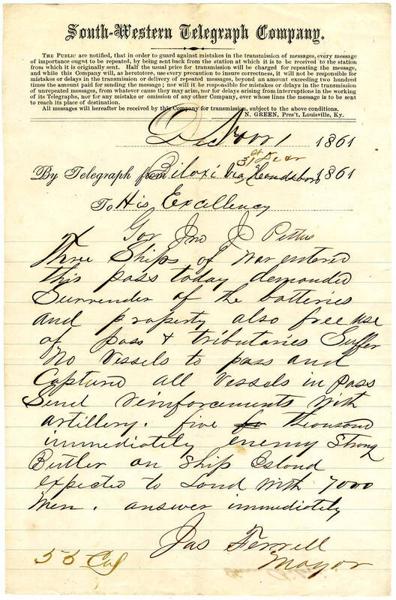 South-Western Telegraph Company.
The Public are notified, that in order to guard against mistakes in the transmission of messages, every message
of importance ought to be repeated, by being sent back from the station at which it is to be received to the station
from which it is originally sent. Half the usual price for transmission will be charged for repeating the message,
and while this Company will, as heretofore, use every precaution to insure correctness, it will not be responsible for
mistakes or delays in the transmission or delivery of repeated messages, beyond an amount exceeding two hundred
times the amount paid for sending the message; nor will it be responsible for mistakes or delays in the transmission
of unrepeated messages, from whatever cause they may arise, nor for delays arising from interruptions in the working
of its Telegraphs, nor for any mistake or omission of any other Company, over whose lines the message is to be sent
to reach its place of destination.
All messages will hereafter be received by this Company for transmission, subject to the above conditions.
N. GREEN, Pres't, Louisville, Ky.
1861
31st Dec
By Telegraph from Biloxi Via 1861
To His Excellency
Gov Jno J Pettus
Three Ships of War entered
this pass today demanded
Surrender of the batteries
and property also free use
of pass & tributaries Suffer
No Vessels to pass and
Capture all Vessels in pass
Send reinforcements with
artillery. five thousand
immediately enemy Strong
Butler on Ship Island
expected to Land with 7000
men. answer immediately
Jas Ferrell
Mayor
55 Col